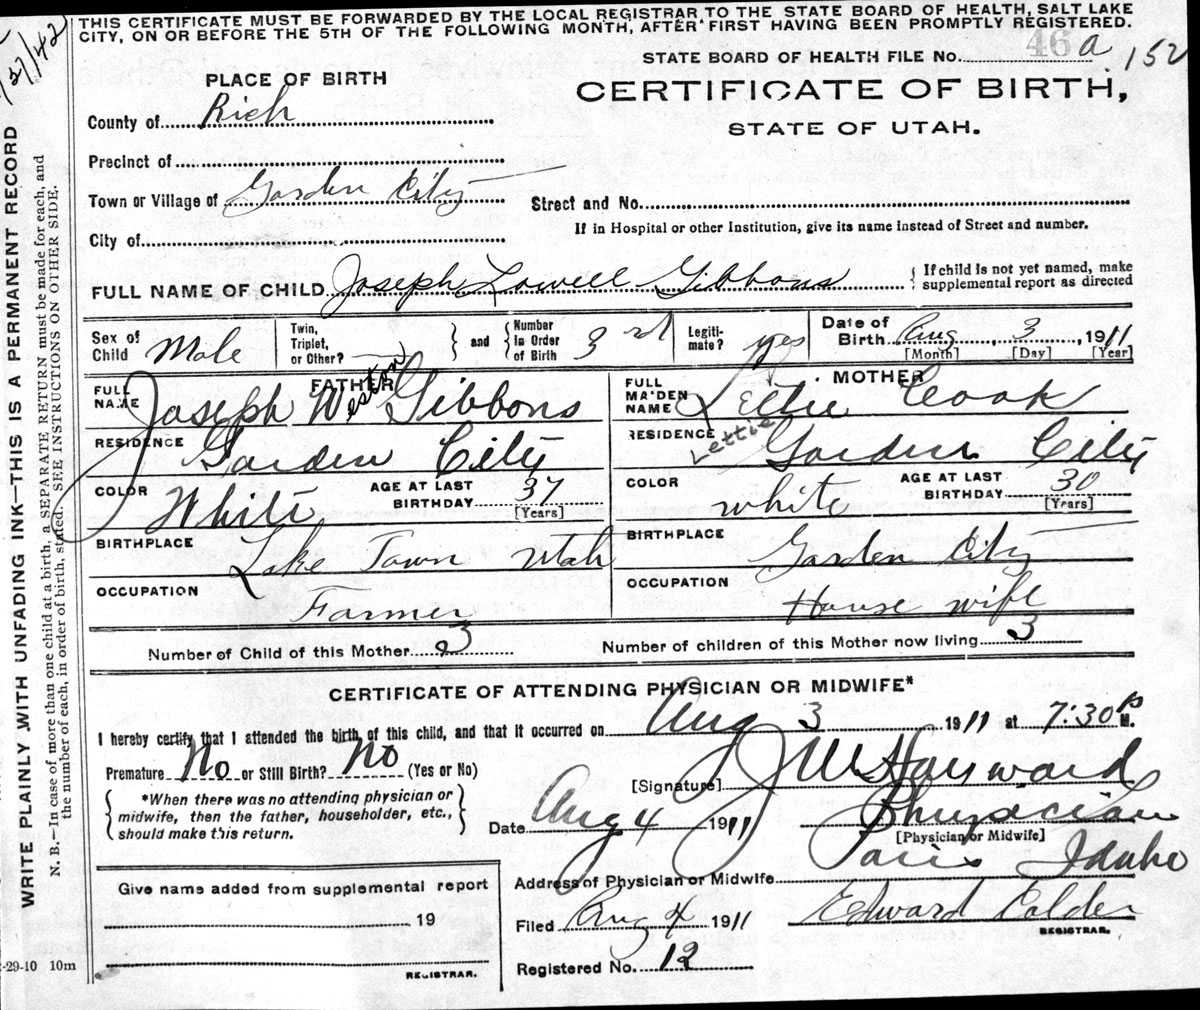 THIS CERTIFICATE MUST BE FORWARDED BY THE LOCAL REGISTRAR TO THE STATE BOARD OF HEALTH, SALT LAKE
CITY, ON OR BEFORE THE 5TH OF THE FOLLOWING MONTH, AFTER FIRST HAVING BEEN PROMPTLY REGISTERED.
STATE BOARD OF HEALTH FILE No. 46 a 152
PLACE OF BIRTH
CERTIFICATE OF BIRTH,
STATE OF UTAH.
County of Rich
Precinct of
Town or Village of Garden City
Street and No.
City of
If in Hospital or other Institution, give its name instead of Street and number.
FULL NAME OF CHILD Joseph Lowell Gibbons
{ If child is not yet named, make
supplemental report as directed
Sex of
Child Male
Twin,
Triplet,
or Other?
} and {
Number
in Order
of Birth 3rd
Legiti-
mate? yes
Date of
Birth Aug 3, 1911
[Month] [Day] [Year]
FATHER
FULL
NAME Joseph Weston Gibbons
RESIDENCE Garden City
COLOR White
AGE AT LAST
BIRTHDAY 37
[Years]
BIRTHPLACE Lake Town Utah
OCCUPATION Farmer
MOTHER
FULL
MAIDEN
NAME Lettie Cook
Lettie
RESIDENCE Garden City
COLOR white
AGE AT LAST
BIRTHDAY 30
[Years]
BIRTHPLACE Garden City
OCCUPATION House wife
Number of Child of this Mother 3
Number of children of this Mother now living 3
CERTIFICATE OF ATTENDING PHYSICIAN OR MIDWIFE*
I hereby certify that I attended the birth of this child, and that it occurred on Aug 3 1911 at 7:30 P M.
Premature No or Still Birth? No (Yes or No)
{ *When there was no attending physician or
midwife, then the father, householder, etc.,
should make this return. }
[Signature] J W Hayward
Date Aug 4 1911
Physician
[Physician or Midwife]
Address of Physician or Midwife Paris Idaho
Give name added from supplemental report
19
REGISTRAR.
Filed Aug 4 1911
Edward Calder
REGISTRAR.
Registered No. 12
-29-10 10m
WRITE PLAINLY WITH UNFADING INK—THIS IS A PERMANENT RECORD
N. B.—In case of more than one child at a birth, a SEPARATE RETURN must be made for each, and
the number of each, in order of birth, stated. SEE INSTRUCTIONS ON OTHER SIDE.